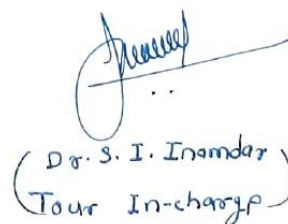 (Dr. S. I. Inamdar
Tour In-charge)